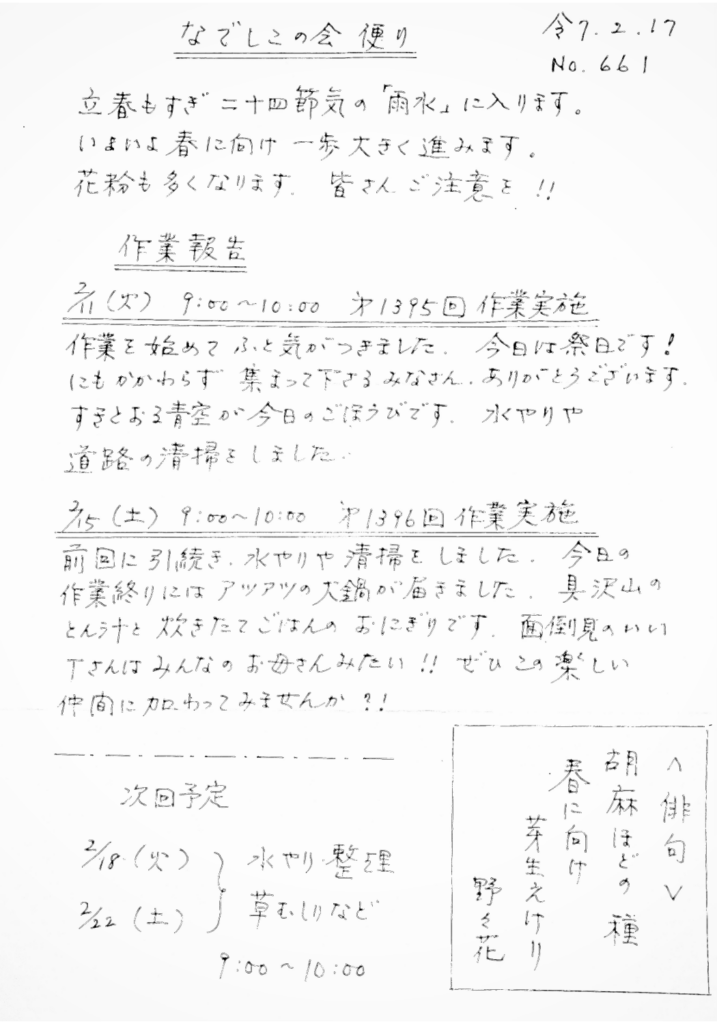 なでしこの会 便り
令7.2.17
No.661
立春もすぎ 二十四節気の「雨水」に入ります。
いよいよ春に向け 一歩大きく進みます。
花粉も多くなります. 皆さんご注意を!!
作業報告
2/11(火) 9:00~10:00 㐧1395回 作業実施
作業を始めて ふと気がつきました. 今日は祭日です!
にもかかわらず 集まって下さるみなさん. ありがとうございます.
すきとおる青空が今日のごほうびです. 水やりや
道路の清掃をしました.
2/15(土) 9:00~10:00 㐧1396回 作業実施
前回に引続き. 水やりや清掃をしました. 今日の
作業終りには アツアツの大鍋が届きました. 具沢山の
とん汁と 炊きたてごはんの おにぎりです. 面倒見のいい
Tさんは みんなのお母さんみたい!! ぜひこの楽しい
仲間に加わってみませんか?!
次回予定
2/18(火)
2/22(土)
水やり.整理
草むしりなど
9:00~10:00
<俳句>
胡麻ほどの種
春に向け
芽生えけり
野々花